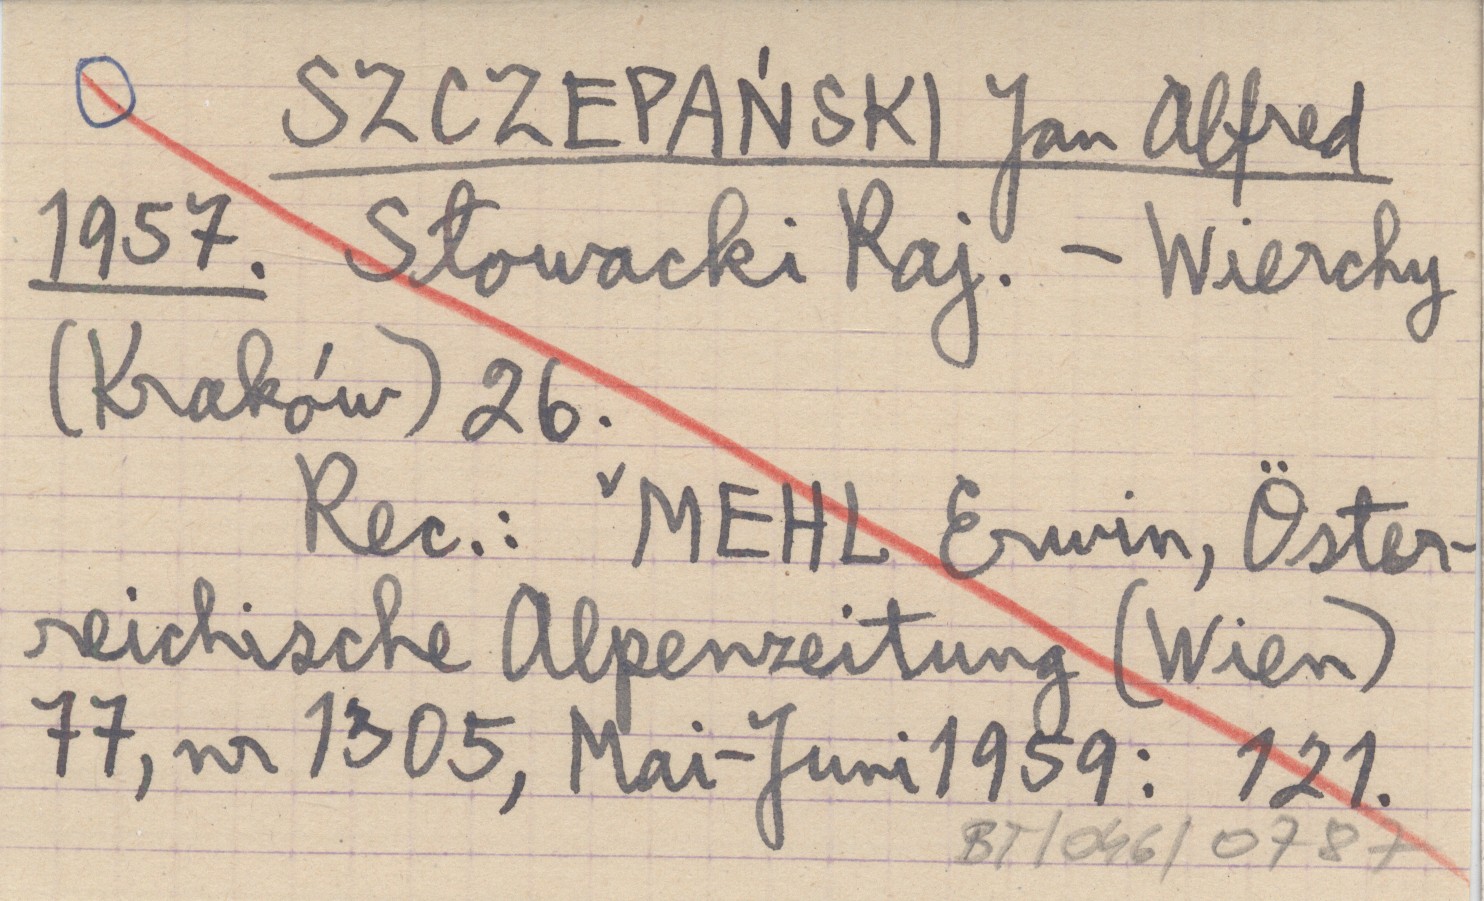 SZCZEPAŃSKI Jan Alfred
1957. Słowacki Raj. – Wierchy
(Kraków) 26.
Rec.: ᵛMEHL Erwin, Öster-
reichische Alpenzeitung (Wien)
77, nr 1305, Mai-Juni 1959: 121.
BT/046/0787